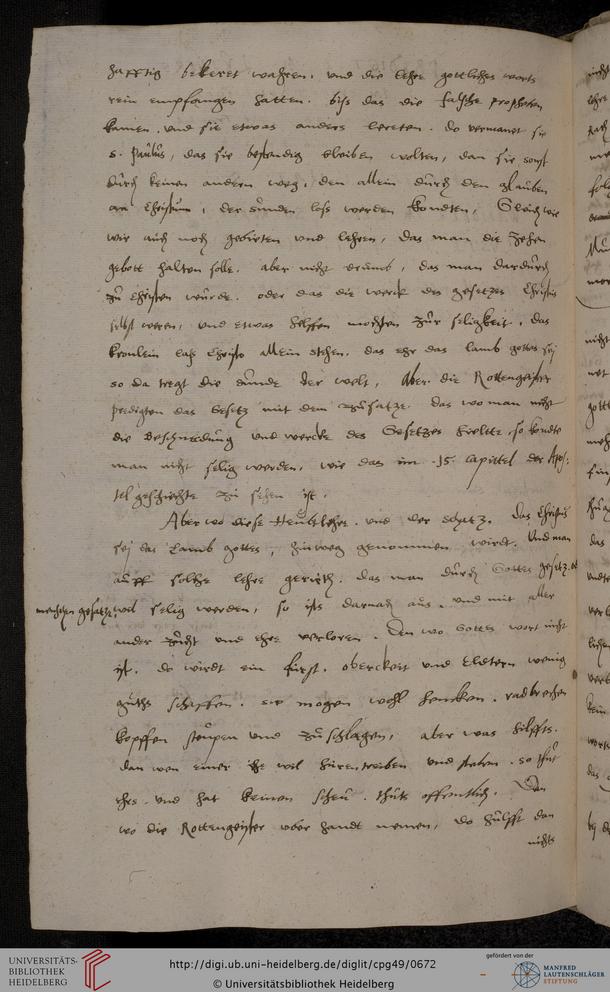 hafftig bekeret waren, vnd die lehre gottliches worts
rein empfangen hatten. biss das die falsche propheten
kamen, vnd sie etwas anders lereten. do vermanet sie
S. Paulus, das sie bestendig bleiben wolten, dan sie sonst
durch keinen andern weg, den allein durch den glauben
an Christum, der sunden loss werden kondten, Gleich wie
wir auch noch gebieten vnd lehren, das man die zehen
gebott halten solle. aber nicht drumb, das man dardurch
zu Christen wurde. oder das die werck des gesetzes Christus
selbst weren, vnd etwas helffen mochten zur seligkeit, das
kronlein lass Christo allein stehen. das ehr das lamb gottes sej
so da tregt die sunde der welt, Aber die Rottengeister
predigten das Gesetz mit dem zusatze. das wo man nicht
die Beschneidung vnd wercke des Gesetzes hieltte, so kondte
man nicht selig werden, wie das im .15. capittel der Apos-
telgeschichte zu sehen ist.
Aber wo diese Heubtlehre. vnd der schatz. das Christus
sej das Lamb gottes, hinweg genommen wirdt. Vnd man
auff solche lehre gereth. das man durch Gottes gesetz od
menschen gesetze, wil selig werden, so ists darnach aus, vnd mit aller
ander zucht vnd ehre verloren. Den wo Gottes wort nicht
ist, do wirdt ein furst, oberckeit vnd Eldtern wenig
guths schaffen. sie mogen wohl hencken, radbrechen
kopffen steupen vnd zuschlagen, aber was hilffts.
dan wen einer ihe wil hurentreiben vnd stelen. so thut
ehrs. vnd hat keinen scheu. thuts offentlich. Den
wo die Rottengeister vberhandt nemen, do hulfft dan
nichts
UNIVERSITÄTS-
BIBLIOTHEK
HEIDELBERG
http://digi.ub.uni-heidelberg.de/diglit/cpg49/0672
© Universitätsbibliothek Heidelberg
gefördert von der
MANFRED
LAUTENSCHLÄGER
STIFTUNG